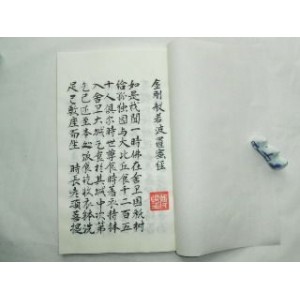 金剛般若波羅蜜经
如是我聞一時佛在舍卫国祇树
给孤独園与大比丘衆千二百五
十人俱尔時世尊食時着衣持钵
入舍卫大城乞食於其城中次第
乞已还至本处饭食讫收衣钵洗
足已敷座而坐 時長老须菩提